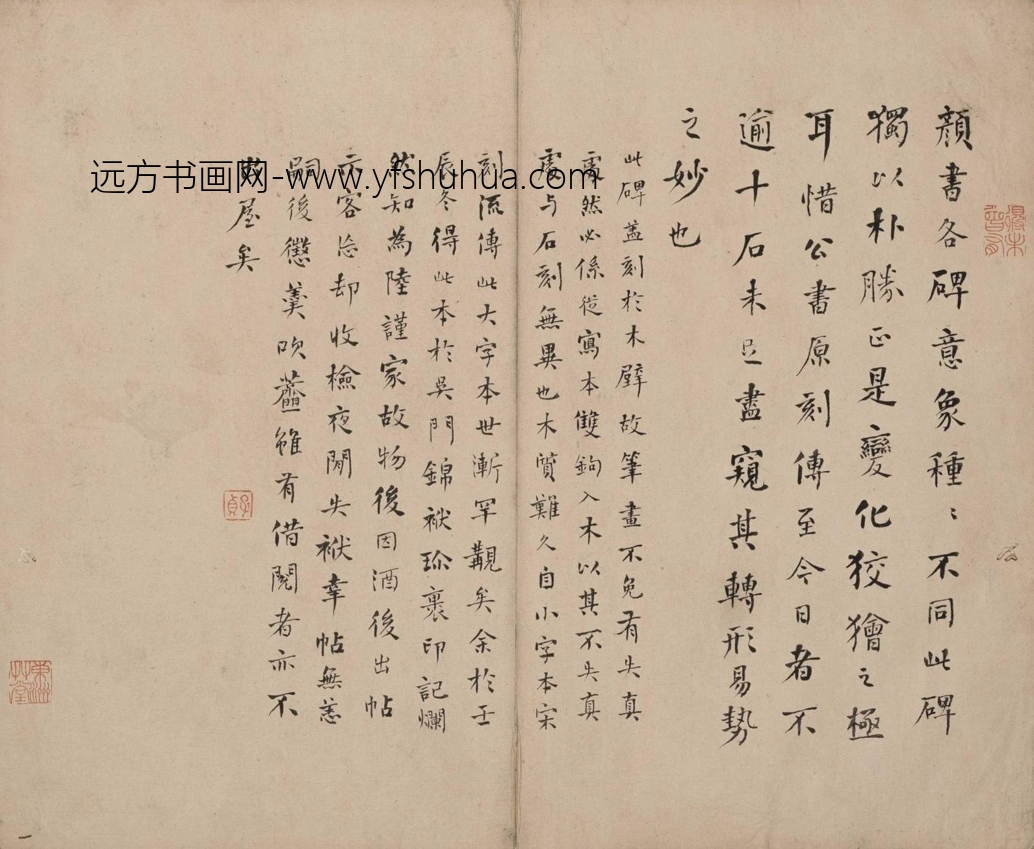 顏書各碑意象種〻不同此碑
獨以朴勝正是變化狡獪之極
耳惜公書原刻傳至今日者不
逾十石未足盡窺其轉形易勢
之妙也
此碑蓋刻於木壁故筆畫不免有失真
處然必係從寫本雙鉤入木以其不失真
處与石刻無異也木質難久自小字本宋
刻流傳此大字本世漸罕覯矣余於壬
辰冬得此本於吳門錦袱珎裹印記爛
然知為陸謹家故物後因酒後出帖
示客忩却收檢夜閒失袱幸帖無恙
嗣後懲羹吹虀雖有借閱者亦不
出屋矣
子貞
远方书画网-www.yfshuhua.com